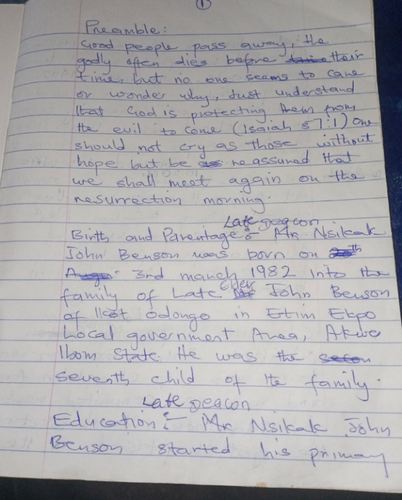 1
Preamble:
Good people pass away, the
godly often dies before their
time, but no one seems to care
or wonder why, Just understand
that God is protecting them from
the evil to come (Isaiah 57:1) One
should not cry as those without
hope but be reassured that
we shall meet again on the
resurrection morning.
Late Deacon
Birth and Parentage:- Mr Nsikak
John Benson was born on
3rd march 1982 into the
family of Late Elder John Benson
of Ikot Odongo in Etim Ekpo
Local government Area, Akwa
Ibom State. He was the
seventh child of the family.
Late Deacon
Education:- Mr Nsikak John
Benson started his primary